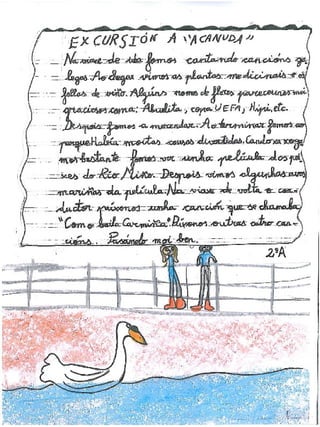 EXCURSIÓN A "ACANUDA"
Na viaxe de ida fomos cantando cancións ga
legas. Ao chegar vimos as plantas medicinais e as
follas de viño. Algúns nomes de flores parecéronnos moi
graciosos coma: Abuelita, copa UEFA, Hipi, etc.
Despois fomos a merendar. Ao terminar fomos ao
parque. Había moitas cousas divertidas. Cando xa xoga
mos bastante fomos ver unha película dos pei
xes do Río Miño. Despois vimos algunhas aves
mariñas da película. Na viaxe de volta o con
ductor púxonos unha canción que se chamaba
"Como baila Carmiña". Púxonos outras catro can-
cións. Pasámolo moi ben.
2ºA